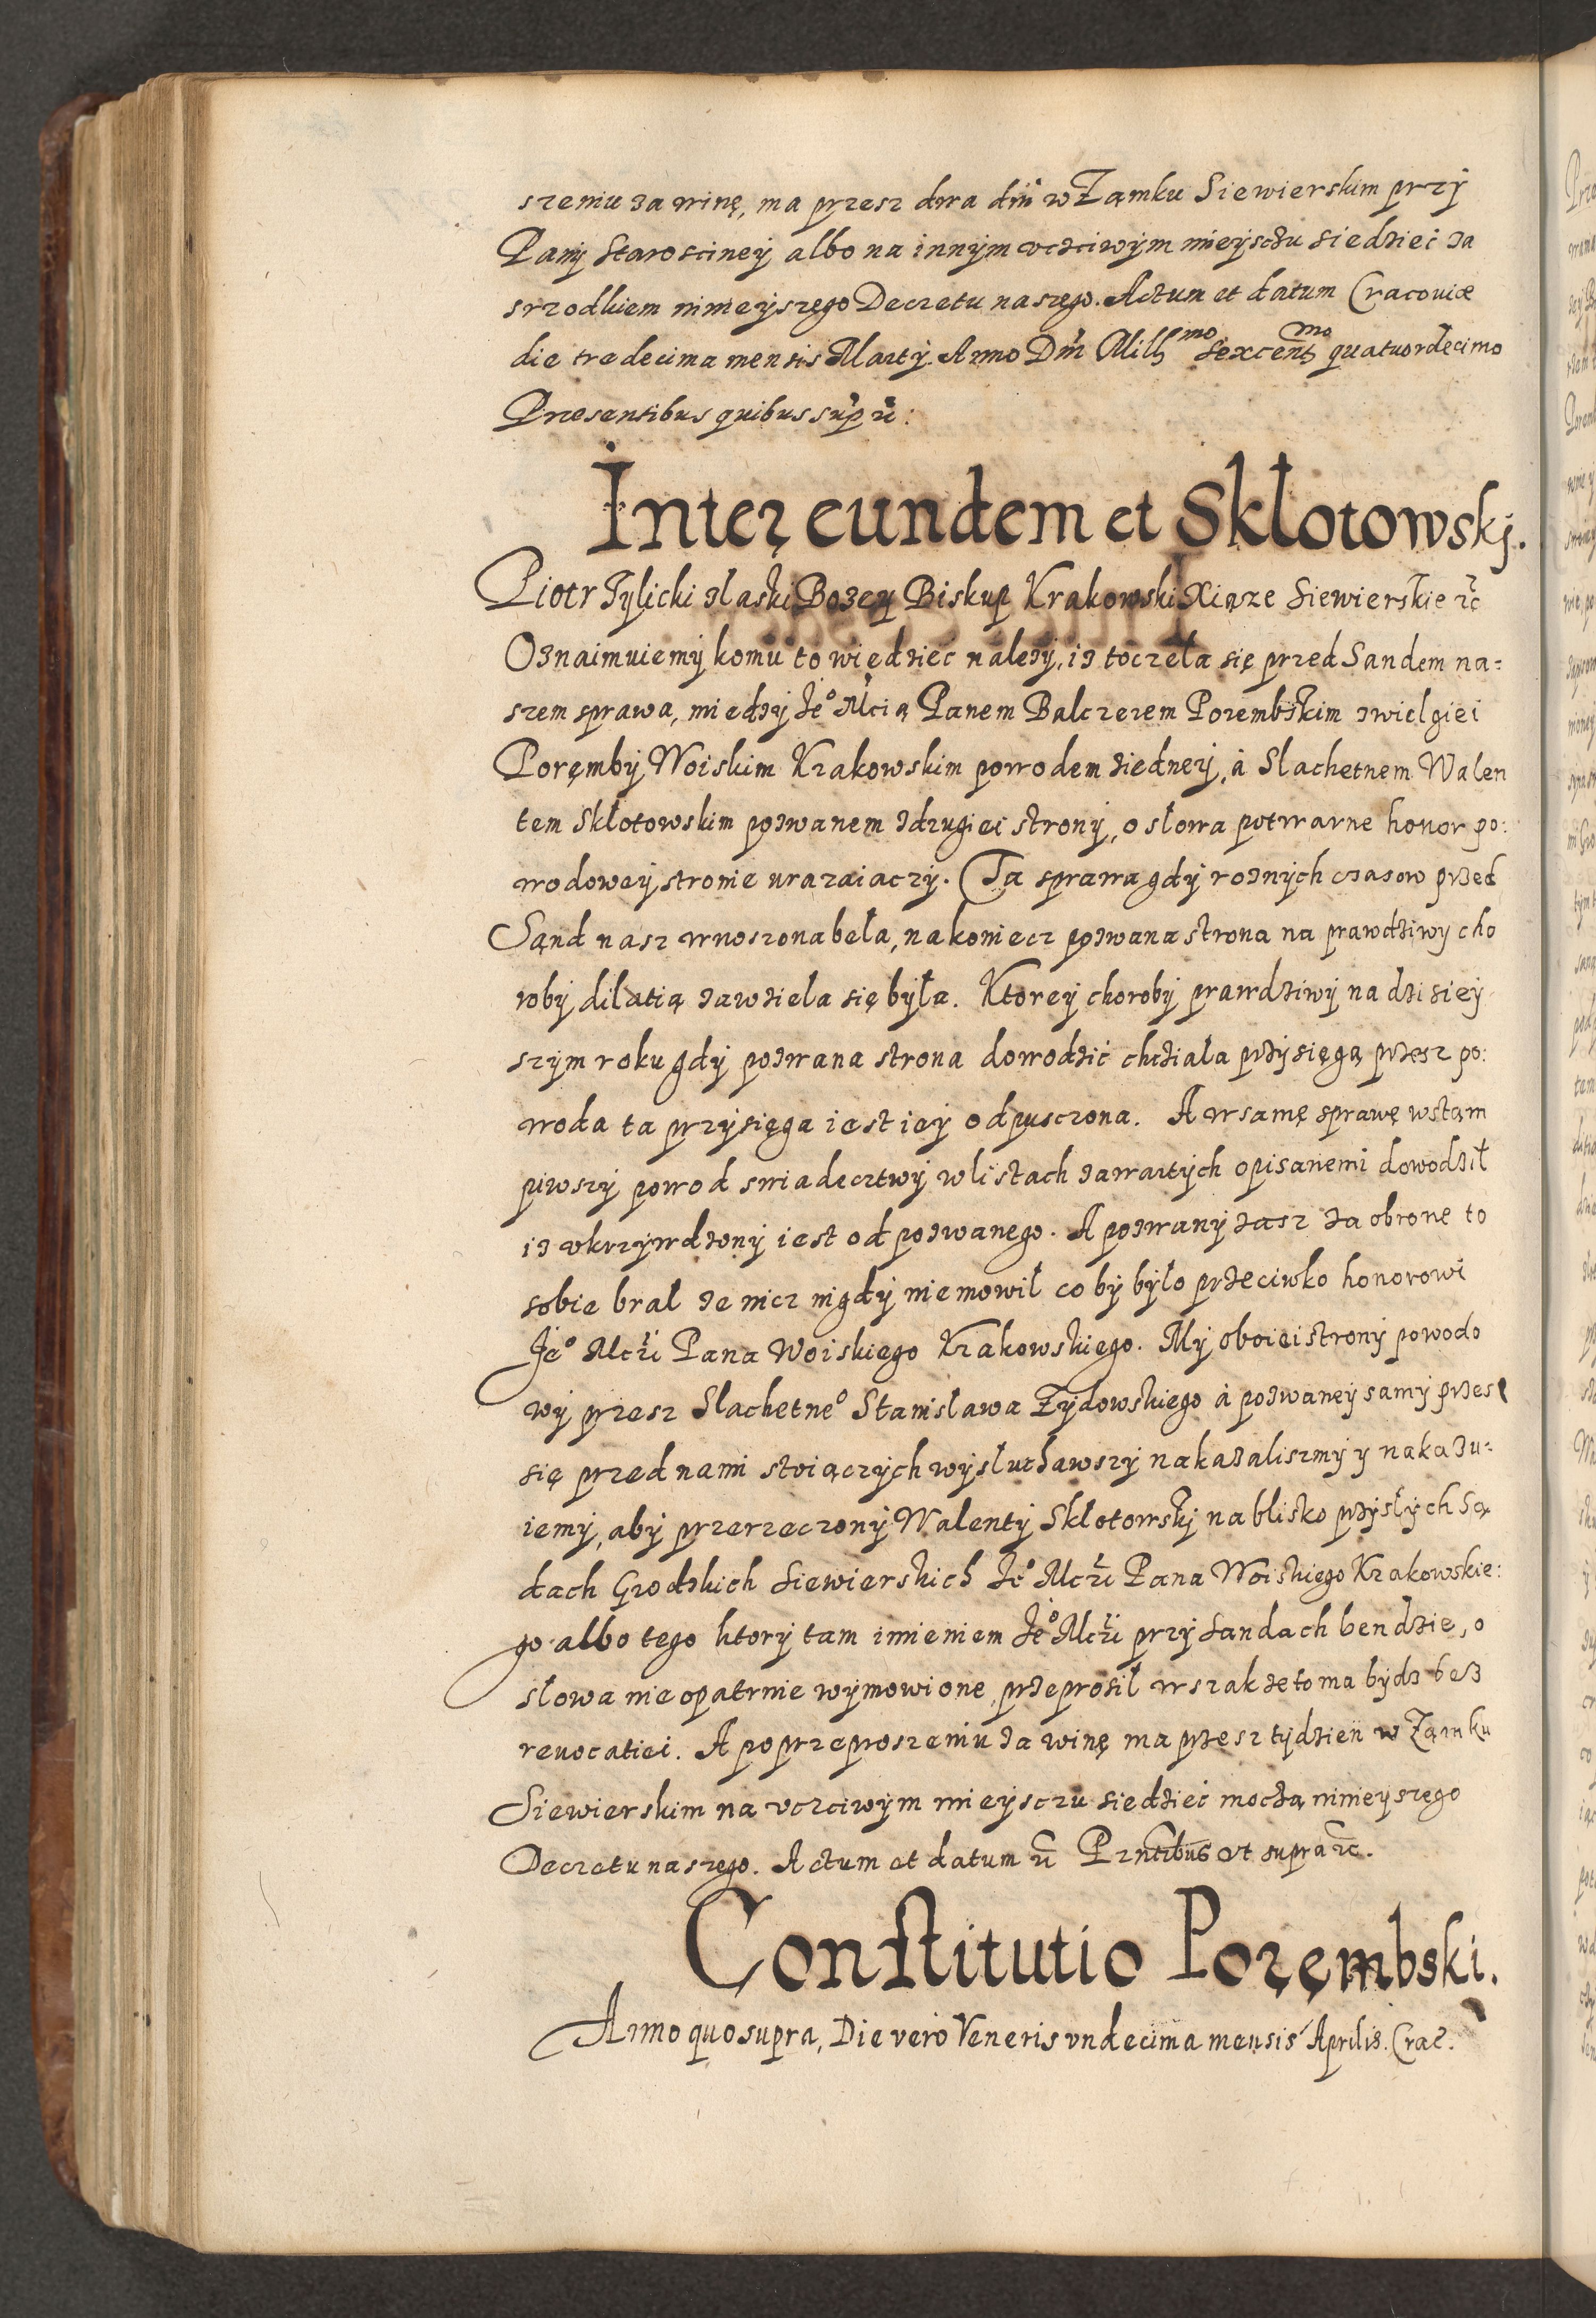 szeniu za winę, ma przesz dwa dni w Zamku Siewierskim przy
Paniy Starosciney albo na innym vczciwym mieysczu siedzieć za
srzodkiem ninieyszego Decretu naszego. Actum et datum Cracouiæ
die tredecima mensis Marty Anno Dni Mill͏mo Sexcentmo quatuordecimo
Præsentibus quibus sup rc:
Inter eundem et Skłotowskj.
Piotr Tylicki zlaski Bozey Biskup Krakowski Xiąze Siewierskie rc
Oznaimuiemy komu to wiedziec nalezy, iz toczeła się przed Sandem na=
szem sprawa, miedzy Je° Mcią Panem Balczerem Porembskim zwielgiei
Poręmby Woiskim Krakowskim powodem ziedney, à Slachetnem Walen
tem Skłotowskim pozwanem zdrugiei strony, o słowa potwarne honor po:
wodowey stronie urazaiaczy. Ta sprawa gdy roznych czasow przed
Sąnd nasz wnoszona beła, nakoniecz pozwana strona na prawdziwy cho
roby dilatią zawzieła się była. Ktorey choroby prawdziwy na dzisiey
szym roku gdy pozwana strona dowodzić chcziała przysięgą przesz po:
woda ta przysięga iest iey odpusczona. A w samę sprawę wstąm
piwszy powod swiadecztwy w listach zawartych opisanemi dowodził
iz vkrzywdzony iest od pozwanego. A pozwany zasz za obronę to
sobie brał ze nicz nigdy niemowił co by było przeciwko honorowi
Je° Mczi Pana Woiskiego Krakowskiego. My oboiei strony powodo
wy przesz Slachetne° Stanisława Zydowskiego à pozwaney samy przes
się przed nami stoiączych wysłuchawszy nakazaliszmy y nakazu=
iemy, aby przerzeczony Walenty Skłotowskj na blisko przyszłych Są
dach Grodzkich Siewierskich Je° Mczi Pana Woiskiego Krakowskie:
go albo tego ktory tam imieniem Je° Mczi przy Sandach bendzie, o
słowa nieopatrnie wymowione, przeprosił wszakze to ma bydz bez
reuocatiei. A po przeproszeniu za winę ma przesz tydzień w Zamku
Siewierskim na vczciwym mieysczu siedzieć moczą ninieyszego
Decretu naszego. Actum et datum rc Prntibus vt supra rc.
Constitutio Poręmbski.
Anno quo supra, Die vero Veneris vndecima mensis Aprilis. Crac.